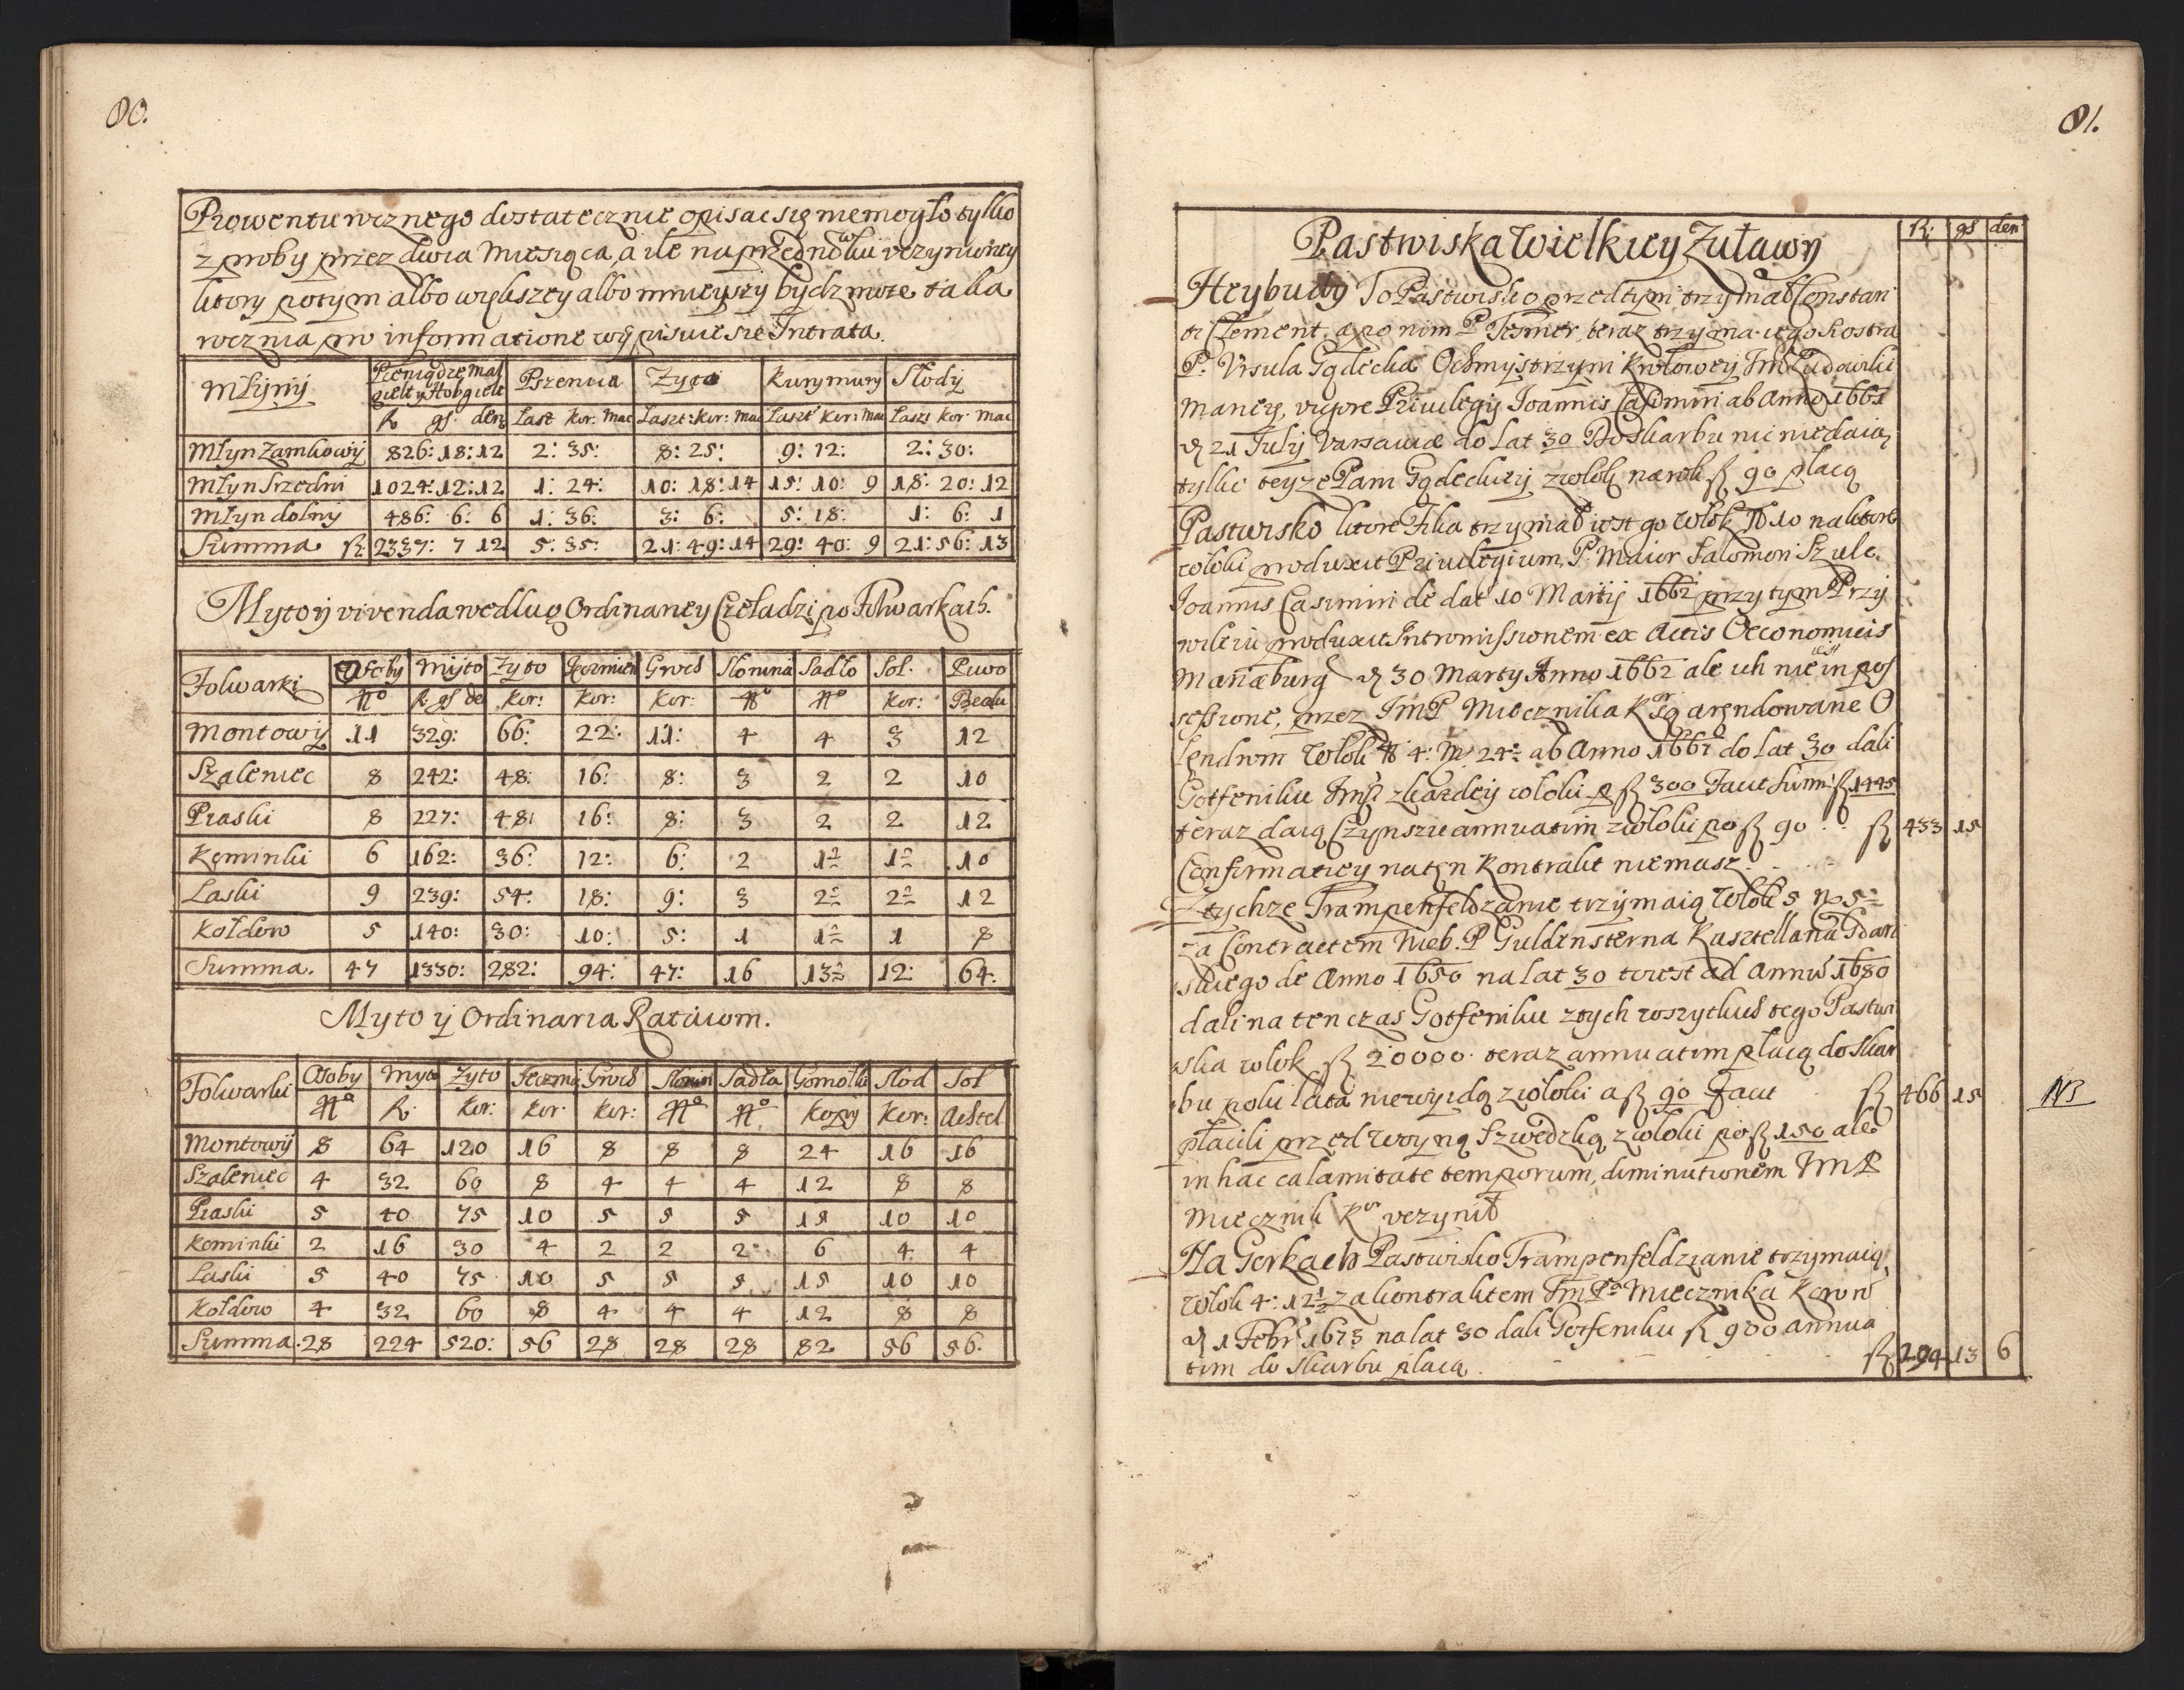 80.
Prowentu rocznego dostatecznie opisac się niemogło tylko
z proby przez dwa Miesiąca, a ile na przednowku uczynioney
ktory potym albo większy albo mnieyszy bydz moze taka
roczna pro informatione wypisuie się Intrata.
Młyny | Pieniądze Mal gielt y Hobgielt | Pszenica | Zyta | Kurymury | Słody
R gs den | Last kor: Mac | Laszt: kor: Mac | Laszt kor: Mac | Laszt kor Mac
Młyn Zamkowy | 826: 18: 12 | 2: 35: | 8: 25: | 9: 12: | 2: 30:
Młyn Srzedni | 1024: 12: 12 | 1: 24: | 10: 18: 14 | 15: 10: 9 | 18: 20: 12
Młyn dolny | 486: 6: 6 | 1: 36: | 3: 6: | 5: 18: | 1: 6: 1
Summa R | 2337: 7 12 | 5: 35: | 21: 49: 14 | 29: 40: 9 | 21: 56: 13
Myto y vivenda według Ordinancy Czeladzi po Folwarkach.
Folwarki | Osoby | Myto | Zyto | Jęczmień | Groch | Słonina | Sadło | Sol. | Piwo
No | R gs de | kor: | kor: | kor: | No | No | kor: | Beczki
Montowy | 11 | 329: | 66: | 22: | 11: | 4 | 4 | 3 | 12
Szaleniec | 8 | 242: | 48: | 16: | 8: | 3 | 2 | 2 | 10
Praski | 8 | 227: | 48: | 16: | 8: | 3 | 2 | 2 | 12
Keminki | 6 | 162: | 36: | 12: | 6: | 2 | 1½ | 1½ | 10
Laski | 9 | 239: | 54: | 18: | 9: | 3 | 2½ | 2½ | 12
Kołdowo | 5 | 140: | 30: | 10: | 5: | 1 | 1½ | 1 | 8
Summa. | 47 | 1330: | 282: | 94: | 47: | 16 | 13½ | 12: | 64:
Myto y Ordinaria Rataiom.
Folwarki | Osoby | Myto | Zyto | Jęczmie | Groch | Słonin | Sadła | Gomołki | Słod | Sol
No | R. | kor: | kor: | kor: | No | No | kopy | kor: | Achtel
Montowy | 8 | 64 | 120 | 16 | 8 | 8 | 8 | 24 | 16 | 16
Szaleniec | 4 | 32 | 60 | 8 | 4 | 4 | 4 | 12 | 8 | 8
Praski | 5 | 40 | 75 | 10 | 5 | 5 | 5 | 15 | 10 | 10
Keminki | 2 | 16 | 30 | 4 | 2 | 2 | 2 | 6 | 4 | 4
Laski | 5 | 40 | 75 | 10 | 5 | 5 | 5 | 15 | 10 | 10
Kołdowo | 4 | 32 | 60 | 8 | 4 | 4 | 4 | 12 | 8 | 8
Summa. | 28 | 224 | 520: | 56 | 28 | 28 | 28 | 82 | 56 | 56.
81.
R: gs den
Pastwiska Wielkiey Zuławy
Heybudy To Pastwisko przedtym trzymał Constan
ti Clement, a po nim P Tesmer, teraz trzyma iego Siostra
P. Vrsula Gądecka Ochmystrzyni Krolowey Jmsci Ludowiki
Mariey, vigore Privilegij Joannis Casimiri ab Anno 1661
d 21 July Varsaviæ do lat 30 Do skarbu nic niedaią
tylko teyze Pani Gądeckiey z włoki na rok R 90 płacą
Pastwisko ktore Filia trzymał iest go Włok No 10 na ktore
włoki produxit Privilegium, P. Maior Salomon Szulc.
Joannis Casimiri de dat 10 Martij 1662 przy tym Przy
wileiu produxit Intromissionem ex Actis Oeconomicis
Mariæburg d 30 Marty Anno 1662 ale ich nie iest in pos
sessione, przez JmP Miecznika Kor: są arendowane O
lendrom Włok No 4: M 24½ ab Anno 1661 do lat 30 dali
Gotfeniku Jmsci z kazdey włoki p R 300 Facit Sum: R 1445
teraz daią Czynszu annuatim z włoki po R 90 . . R 433 15
Confirmatiey na ten Kontrakt niemasz. . . .
Z tychze Trampenfeldzanie trzymaią Włok 5 M 5½
za Contractem Nieb. P Guldensterna Kasztellana Gdan
skiego de Anno 1650 na lat 30 to iest ad Annu 1680
dali na ten czas Gotfeniku z tych wszytkich tego Pastwi
ska włok R 20000. teraz annuatim płacą do Skar
bu poki lata niewyidą z włoki a R 90 Facit R 466 15 NB
płacili przed woyną Szwedzką z włoki po R 150 ale
in hac calamitate temporum, diminutionem JmP
Miecznik Kor uczynił
Na Gorkach Pastwisko Trampenfeldzianie trzymaią
Włok 4: 12½ za kontraktem JmPa Miecznika Koron
d 1 Febr 1673 na lat 30 dali Gotfeniku R 900 annua
tim do Skarbu płacą . . . R 294 13 6